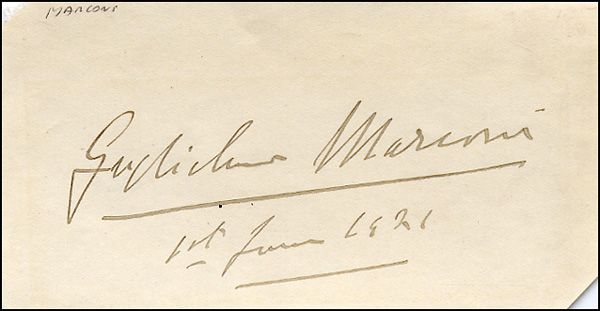 MARCONI
Guglielmo Marconi
1st June 1921